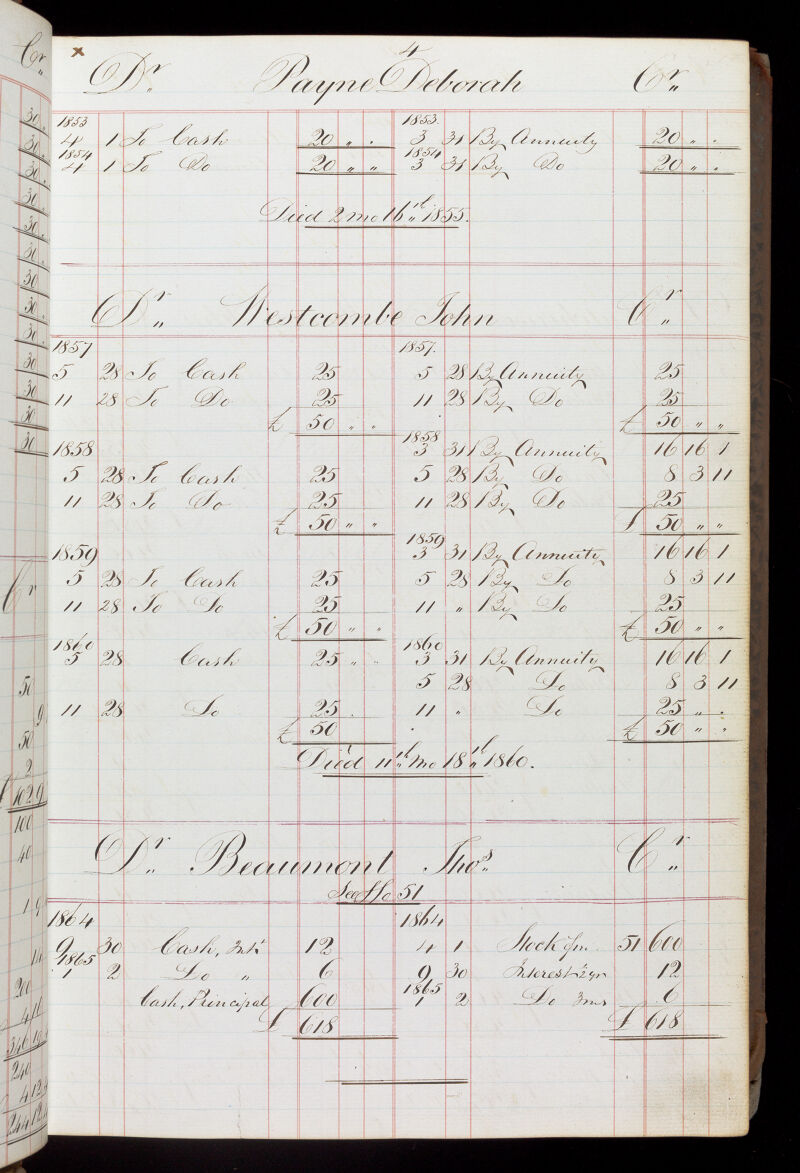 4
x
Dr. Payne Deborah Cr.
1853 1853.
4 1 To Cash 20 " " 3 31 By Annuity 20 " "
1854 1854
4 1 To Do 20 " " 3 31 By Do 20 " "
Died 2 mo 16th 1855.
Dr. Westcombe John Cr.
1857 1857.
5 28 To Cash 25 5 28 By Annuity 25
11 28 To Do 25 11 28 By Do 25
£ 50 " " £ 50 " "
1858 1858
3 31 By Annuity 16 16 1
5 28 To Cash 25 5 28 By Do 8 3 11
11 28 To Do 25 11 28 By Do 25
£ 50 " " £ 50 " "
1859 1859
3 31 By Annuity 16 16 1
5 28 To Cash 25 5 28 By Do 8 3 11
11 28 To Do 25 11 " By Do 25
£ 50 " " £ 50 " "
1860 1860
5 28 Cash 25 " " 3 31 By Annuity 16 16 1
5 28 Do 8 3 11
11 28 Do 25 11 " Do 25 " "
£ 50 £ 50 " "
Died 11th mo 18th 1860.
Dr. Beaumont Thos. Cr.
See Fo 51
1864 1864
9 30 Cash, Int. 12 4 1 Stock fm 51 600
1865
1 2 Do " 6 9 30 Interest ½ yr 12
1865
Cash, Principal 600 1 2 Do 3 ms 6
£ 618 £ 618